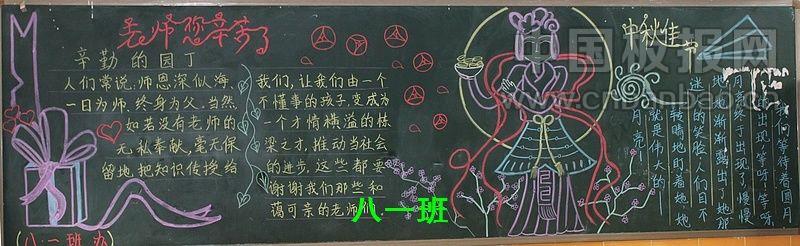 老师您辛劳了
辛勤的园丁
人们常说：师恩深似海、
一日为师，终身为父，当然
如若没有老师的
无私奉献，毫无保
留地把知识传授给
我们，让我们由一个
不懂事的孩子，变成为
一个才情横溢的栋
梁之才，推动当社会
的进步，这些都要
谢谢我们那些和
蔼可亲的老师们
八一班
八·一班办
中秋佳节
我们等待着圆月
的出现！等呀！等呀
月亮终于出现了慢慢
地渐渐露出了她那
迷人的笑脸人们目不
转睛地盯着她她
就是伟大的
月亮
中国板报网
www.cnbanbao.cn